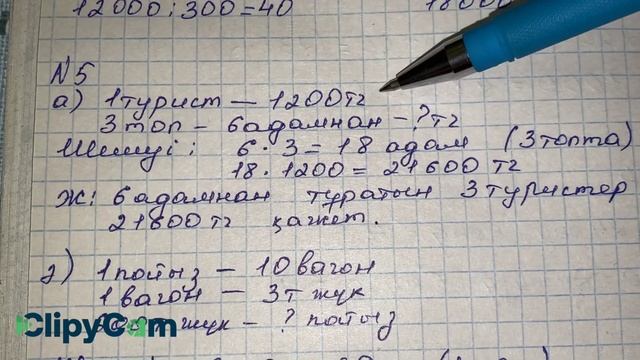 12000:300=40
18000
№5
а) 1турист — 1200тг
3топ — 6адамнан — ? тг
Шешуі: 6·3=18 адам (3топта)
18·1200=21600 тг
Ж: 6адамнан туратын 3туристер
21600тг қажет.
2) 1пойыз — 10вагон
1вагон — 3т жүк
жүк — ? пойыз
iClipyCam